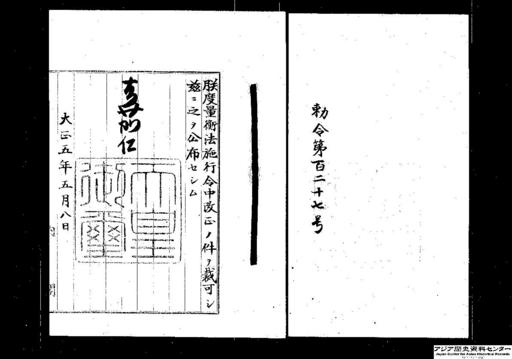 勅令第百二十七号
朕度量衡法施行令中改正ノ件ヲ裁可シ
茲ニ之ヲ公布セシム
嘉仁
天皇御璽
大正五年五月八日
内閣
アジア歴史資料センター
Japan Center for Asian Historical Records